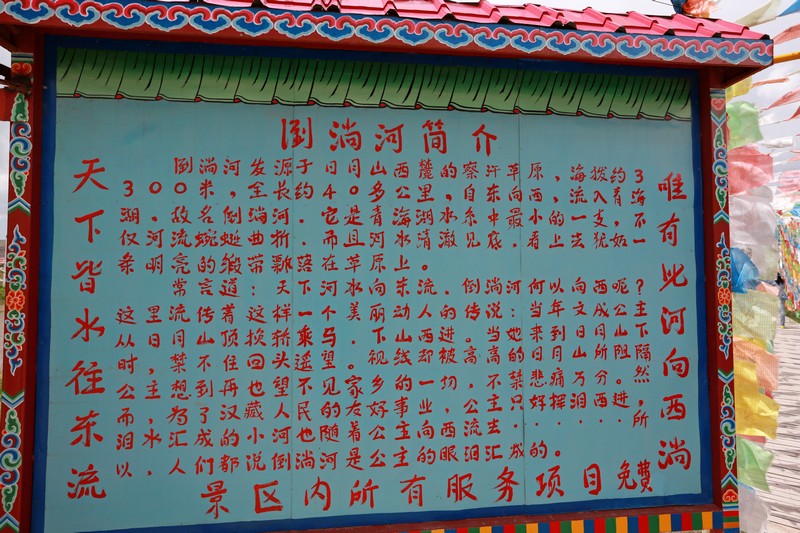 倒淌河简介
天下皆水往东流
倒淌河发源于日月山西麓的察汗草原，海拨约3
300米，全长约40多公里，自东向西，流入青海
湖，故名倒淌河．它是青海湖水系中最小的一支，不
仅河流蜿蜒曲折．而且河水清澈见底．看上去犹如一
条明亮的缎带飘落在草原上。
常言道：天下河水向东流，倒淌河何以向西呢？
这里流传着这样一个美丽动人的传说：当年文成公主
从日月山顶换轿乘马．下山西进。她来到日月山下
时，禁不住回头遥望。视线却被高高的日月山所阻隔，
公主想到再也望不见家乡的一切，不禁悲痛万分。然
而为了汉藏人民的友好事业，公主只好挥泪西进，
泪水汇成的小河也随着公主向西流去......所
以．人们都说倒淌河是公主的眼泪汇成的。
唯有此河向西淌
景区内所有服务项目免费